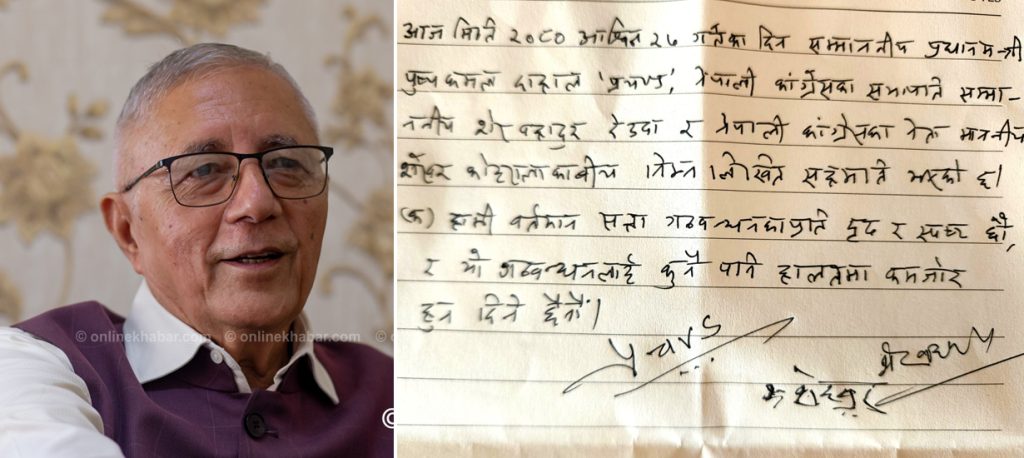 आज मिति २०८० आश्विन २६ गतेका दिन सम्माननीय प्रधानमन्त्री
पुष्पकमल दाहाल 'प्रचण्ड', नेपाली कांग्रेसका सभापति सम्मा-
ननीय शेरबहादुर देउवा र नेपाली कांग्रेसका नेता माननीय
शेखर कोइरालाकाबीच निम्न लिखित सहमति भएको छ।
(क) हामी वर्तमान सत्ता गठबन्धनकाप्रति दृढ र स्पष्ट छौं,
र यो गठबन्धनलाई कुनै पनि हालतमा कमजोर
हुन दिने छैनौं।
© onlinekhabar.com © onlinekhabar.com ©